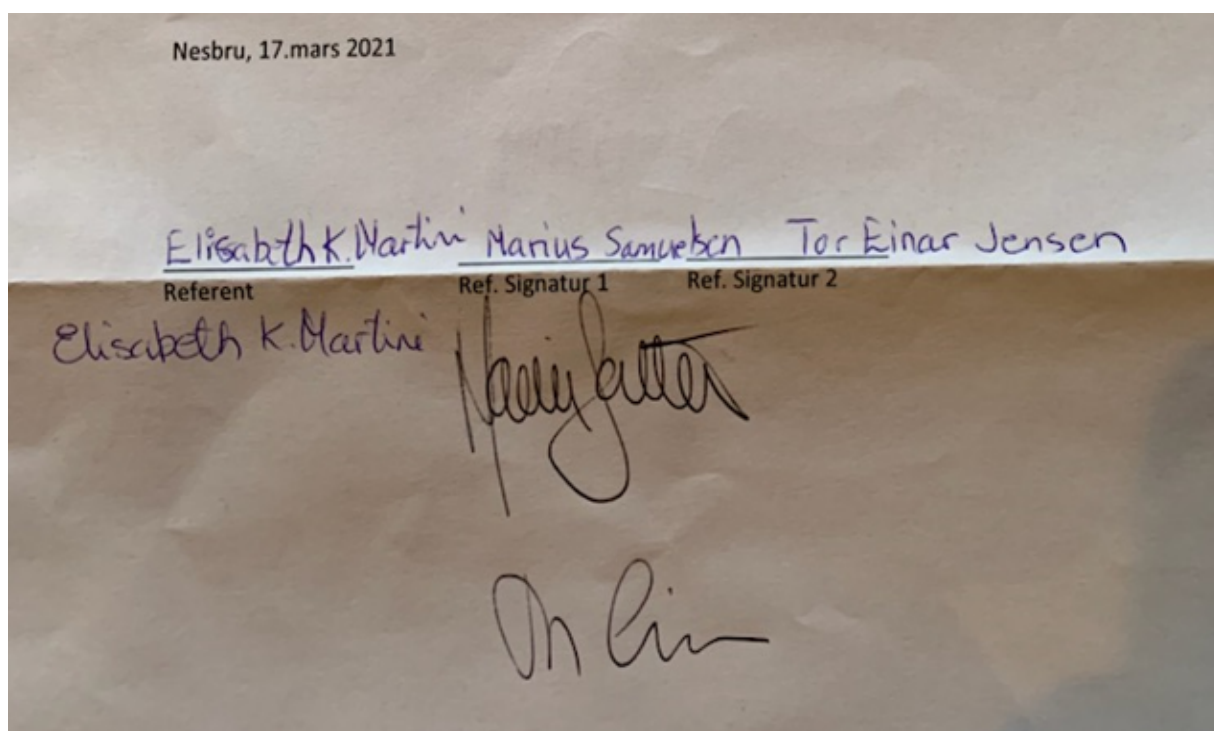 Nesbru, 17.mars 2021
Elisabeth K. Martini Marius Samuelsen Tor Einar Jensen
Referent Ref. Signatur 1 Ref. Signatur 2
Elisabeth K. Martini